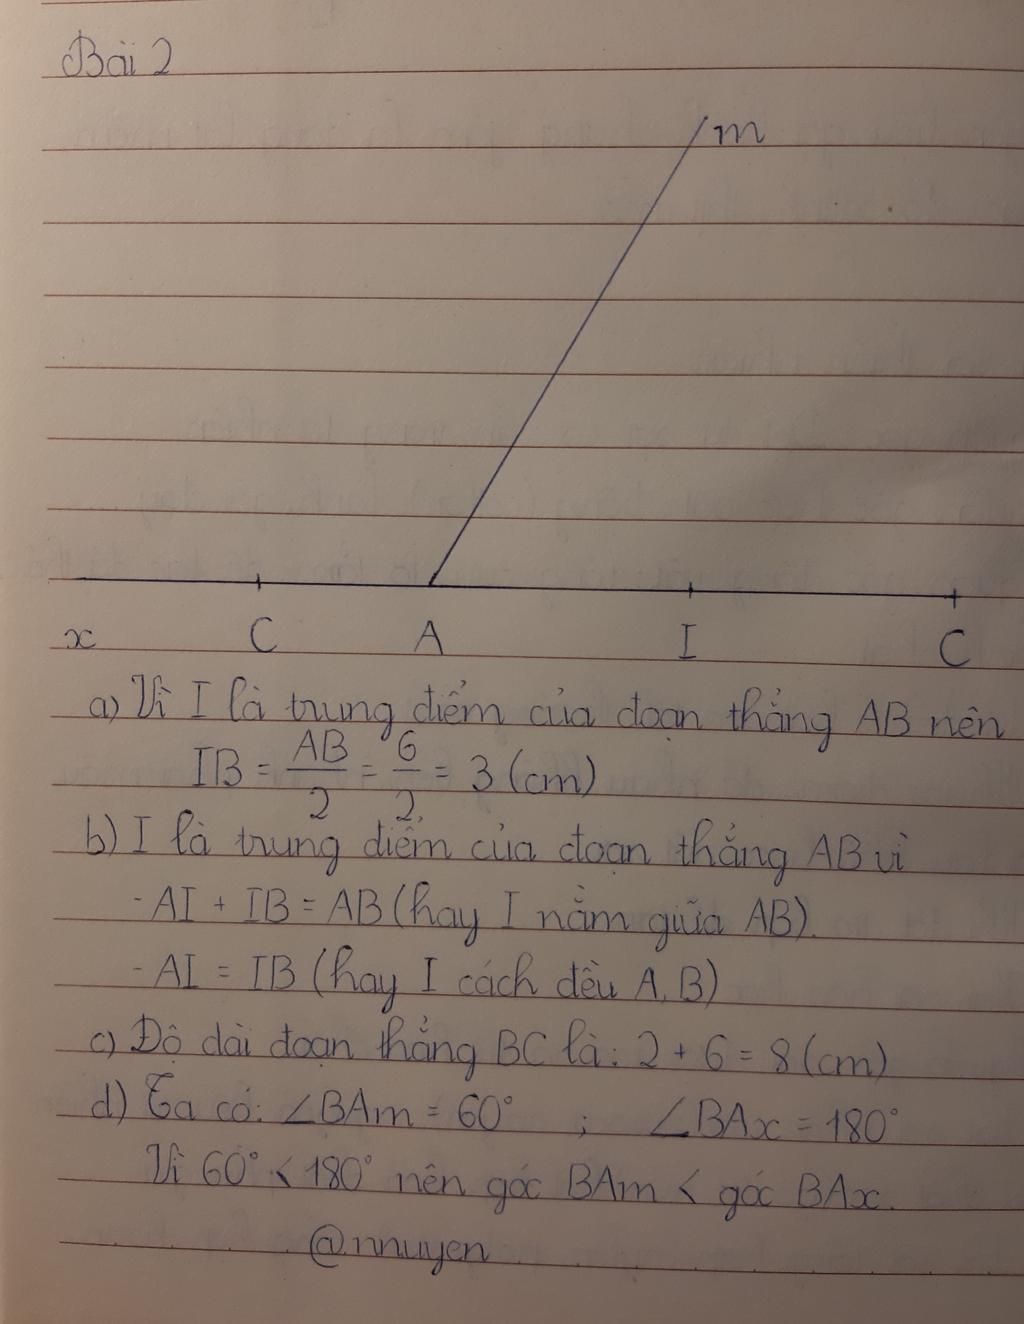 Bài 2
m
x C A I C
a) Vì I là trung điểm của đoạn thẳng AB nên
IB = AB/2 = 6/2 = 3 (cm)
b) I là trung điểm của đoạn thẳng AB vì
- AI + IB = AB (hay I nằm giữa AB).
- AI = IB (hay I cách đều A, B)
c) Độ dài đoạn thẳng BC là: 2 + 6 = 8 (cm)
d) Ta có: ∠BAm = 60° ; ∠BAx = 180°
Vì 60° < 180° nên góc BAm < góc BAx.
@nnuyen